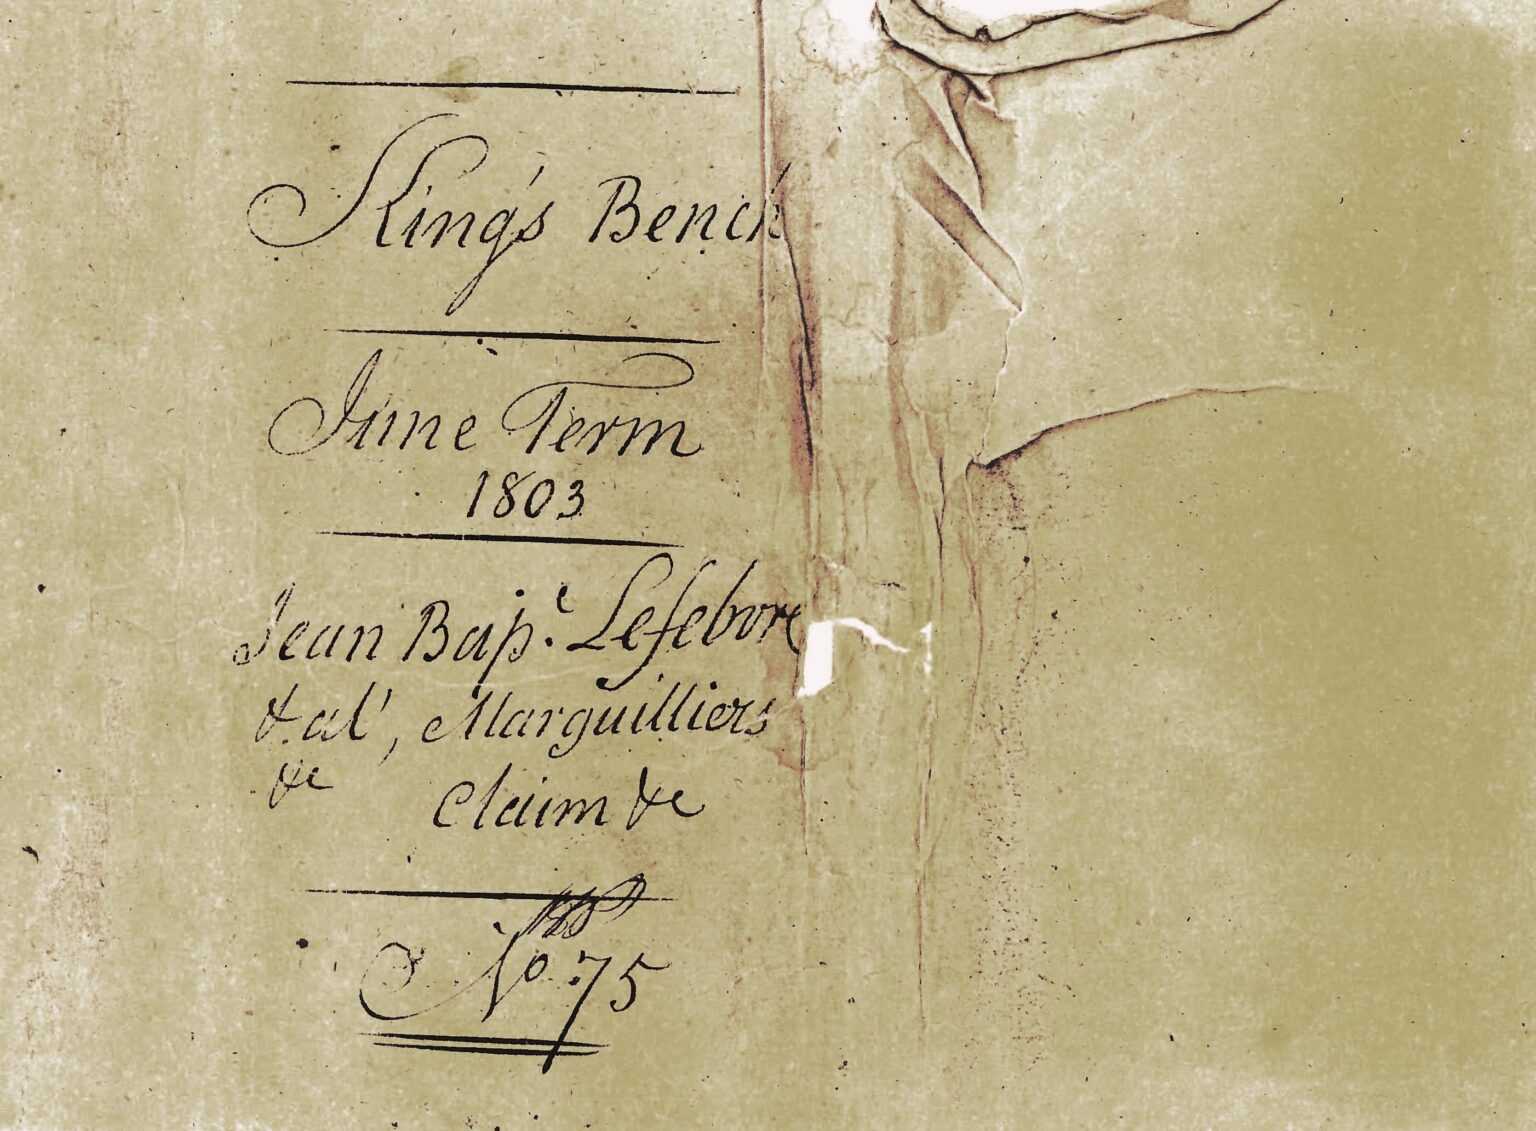 King's Bench
June Term
1803
Jean Bap.e Lefebvre
& al', Marguilliers
&c Claim &c
No. 75